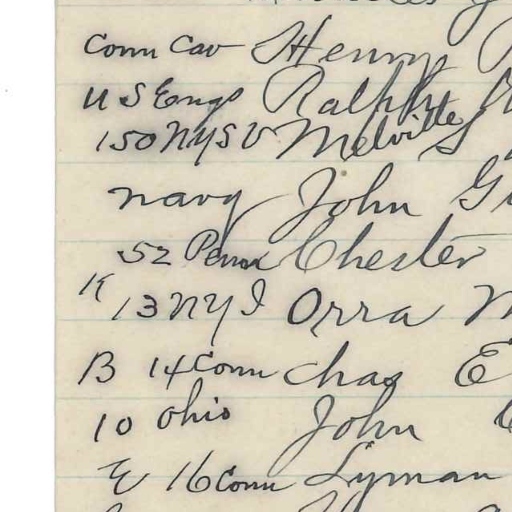 Conn Cav Henry
U S Engs Ralph
150 NYSV Melville S
navy John
52 Penn Chester
K 13 NY I Orra
B 14 Conn Chas E
10 Ohio John
E 16 Conn Lyman